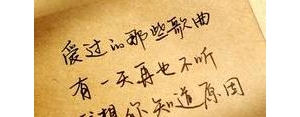 爱过的那些歌曲
有一天再也不听
想你知道原因